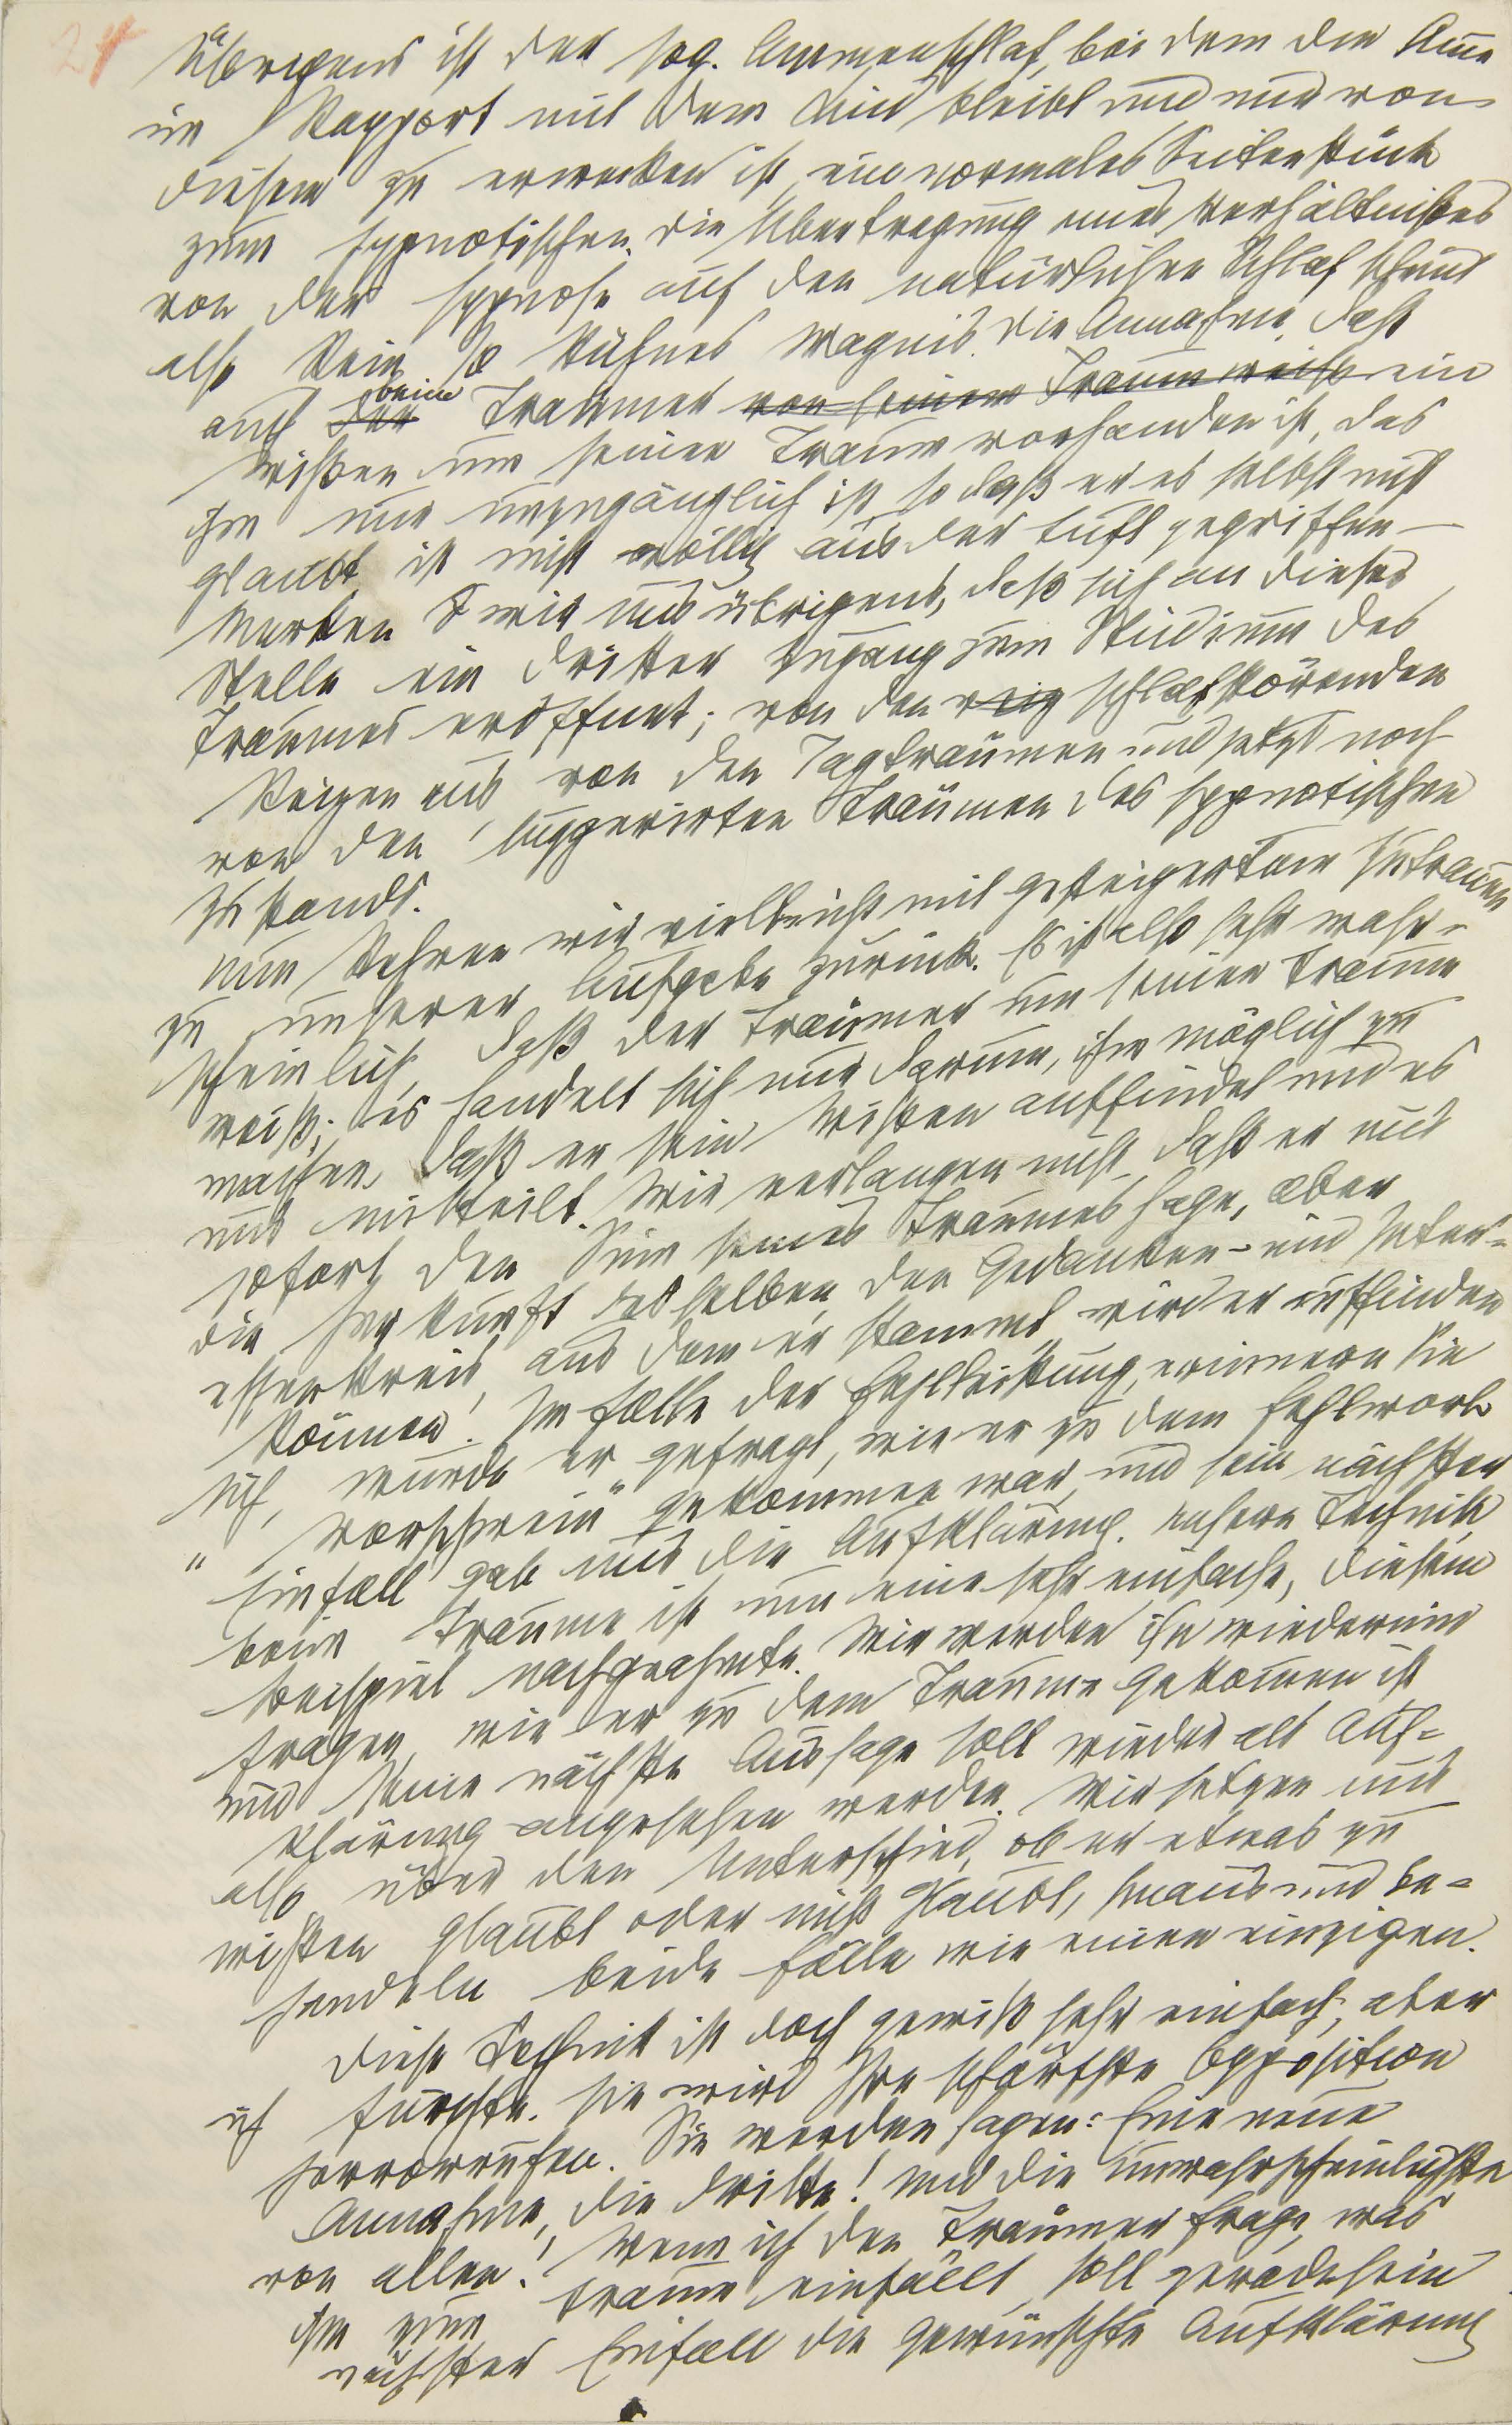 24
Übrigens ist der sog. Ammenschlaf, bei dem die Amme
in Rapport mit dem Kind bleibt und nur von
diesem zu erwecken ist, ein normales Seitenstück
zum hypnotischen. Die Übertragung eines Verhältnißes
von der Hypnose auf den natürlichen Schlaf scheint
also kein so kühnes Wagnis. Die Annahme, daß
auch der beim Träumer von seinem Traum weiß ein
Wißen um seinen Traum vorhanden ist, das
ihm nur unzugänglich ist so daß er es selbst nicht
glaubt ist nicht völlig aus der Luft gegriffen –
Merken wir uns übrigens, daß sich an dieser
Stelle ein dritter Zugang zum Studium des
Traumes eröffnet; von den schlafstörenden
Reizen aus von den Tagträumen und jetzt noch
von den suggerirten Träumen des hypnotischen
Zustands.
Nun kehren wir vielleicht mit gesteigertem Zutrauen
zu unserer Aufgabe zurück. Es ist also sehr wahr-
scheinlich, daß der Träumer um seinen Traum
weiß; es handelt sich nur darum, ihm möglich zu
machen, daß er sein Wißen auffindet und es
uns mitteilt. Wir verlangen nicht, daß er uns
sofort den Sinn seines Traumes sage, aber
die Herkunft desselben, den Gedanken- und Inter-
essenkreis, aus dem er stammt wird er auffinden
können. Im Falle der Fehlleistung, erinnern Sie
sich, wurde er gefragt, wie er zu dem Fehlwort
"Vorschwein" gekommen war, und sein nächster
Einfall gab uns die Aufklärung. Unsere Technik
beim Traume ist nun eine sehr einfache, diesem
Beispiel nachgeahmte. Wir werden ihn wiederum
fragen, wie er zu dem Traume gekommen ist
und seine nächste Aussage soll wieder als Auf-
klärung angesehen werden. Wir setzen uns
also über den Unterschied, ob er etwas zu
wißen glaubt oder nicht glaubt, hinaus und be-
handeln beide Fälle wie einen einzigen.
Diese Technik ist doch gewiß sehr einfach, aber
ich fürchte, sie wird Ihre schärfste Opposition
hervorrufen. Sie werden sagen: Eine neue
Annahme, die dritte! Und die unwahrscheinlichste
von allen! Wenn ich den Träumer frage, was
ihm zum Traume einfällt, soll gerade sein
nächster Einfall die gewünschte Aufklärung